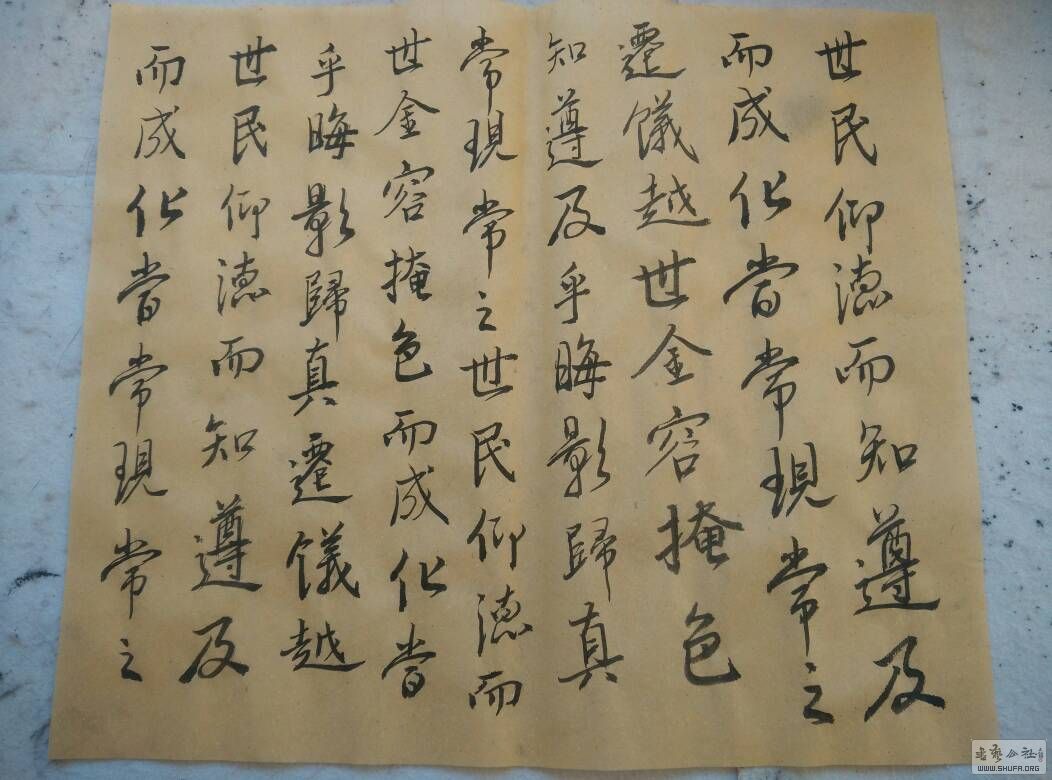 而成化當常現常之
世民仰德而知遵及
乎晦影歸真遷儀越
世金容掩色而成化當
常現常之世民仰德而
知遵及乎晦影歸真
遷儀越世金容掩色
而成化當常現常之
世民仰德而知遵及
书艺公社
WWW.SHUFA.ORG